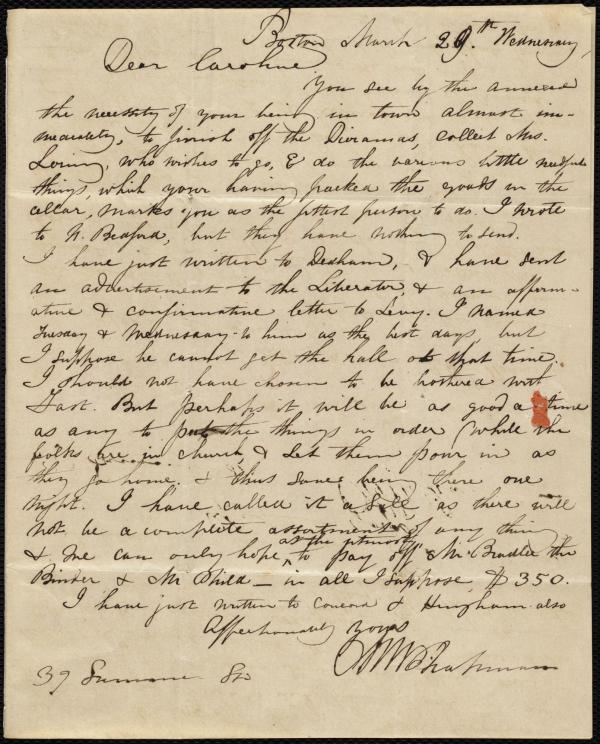 Boston March 29.th Wednesday,
Dear Caroline
You see by the annexed
the necessity of your being in town almost im-
mediately, to finish off the Dioramas, collect Mrs.
Loring, who wishes to go, & do the various little needful
things, which your having packed the goods in the
cellar, marks you as the fittest person to do. I wrote
to N. Bedford, but they have nothing to send.
I have just written to Dedham, & have sent
an advertisement to the Liberator & an affirm-
ative & confirmative letter to Levy. I named
Tuesday & Wednesday to him as the best days, but
I suppose he cannot get the hall at that time.
I should not have chosen to be bothered with
Fast. But perhaps it will be as good a time
as any to put the things in order (while the
folks are in church, & let them pour in as
they go home. & thus save being there one
night. I have called it a Sale as there will
not be a complete assortment of any thing
& we can only hope at the utmost to pay off Mr. Bradlee the
Binder & Mr Child — in all I suppose, $350.
I have just written to Concord & Hingham also
Affectionately yours
M W Chapman
39 Summer St.